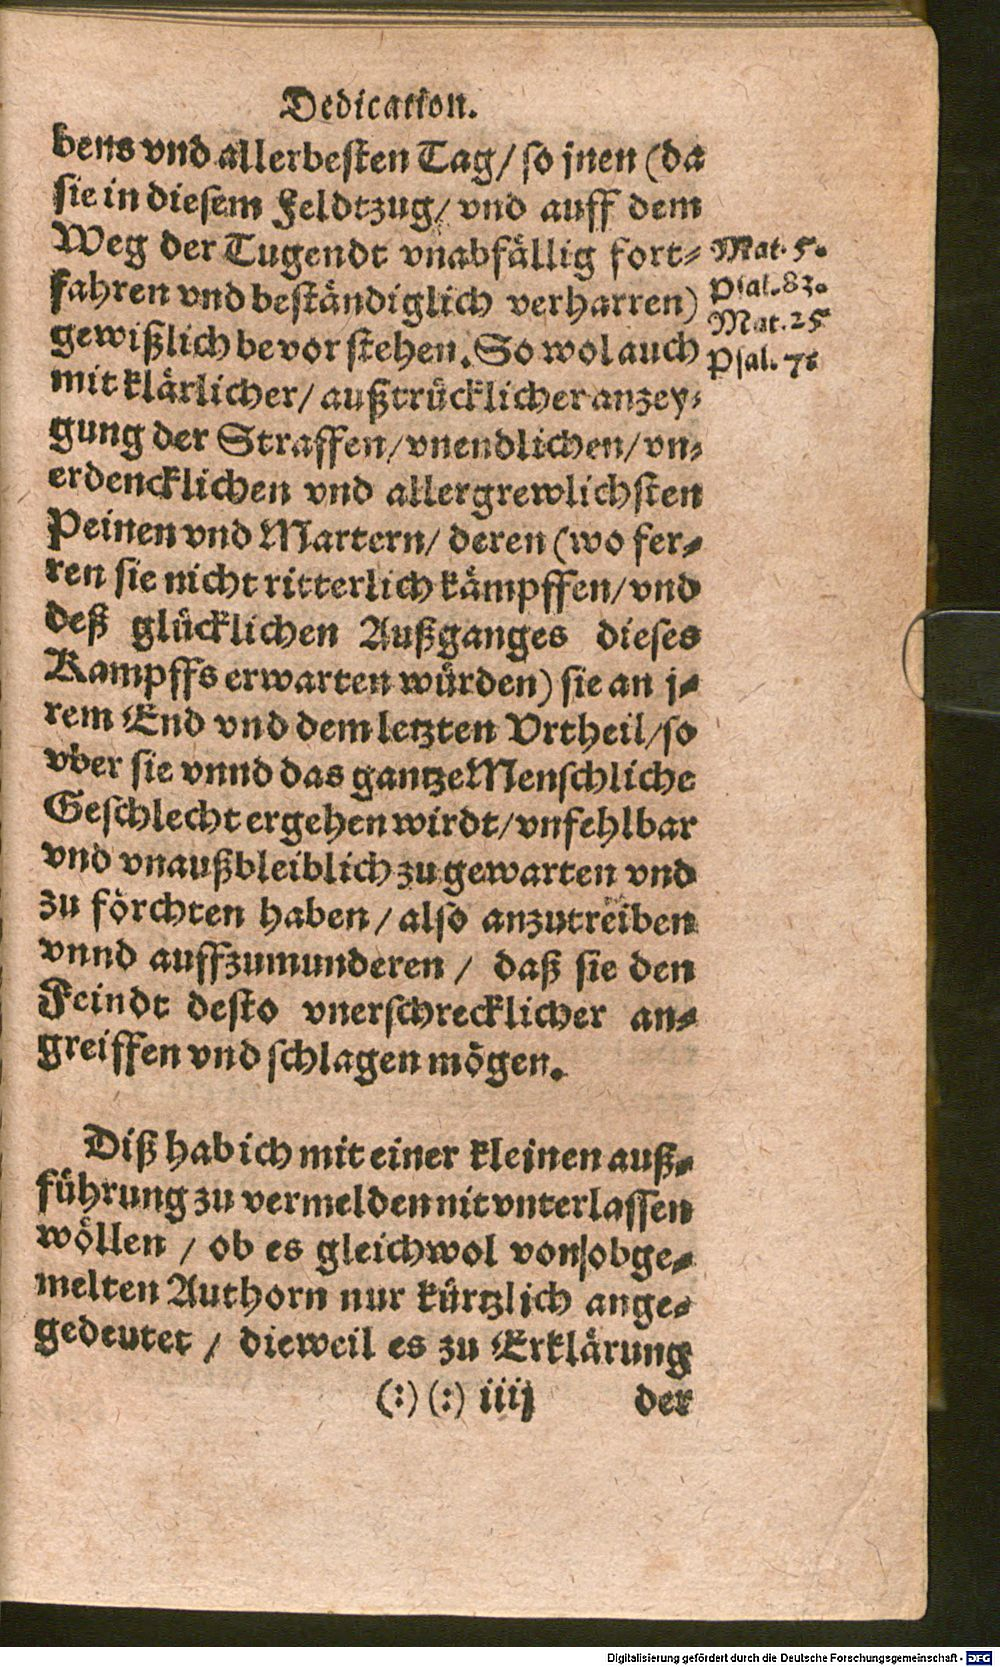 Dedication.
bens vnd allerbesten Tag/ so jnen (da
sie in diesem Feldtzug/ vnd auff dem
Weg der Tugendt vnabfällig fort-
fahren vnd beständiglich verharren)
gewißlich bevor stehen. So wol auch
mit klärlicher/ außtrücklicher anzey-
gung der Straffen/ vnendlichen/ vn-
erdencklichen vnd allergrewlichsten
Peinen vnd Martern/ deren (wo fer-
ren sie nicht ritterlich kämpffen/ vnd
deß glücklichen Außganges dieses
Kampffs erwarten würden) sie an j-
rem End vnd dem letzten Vrtheil/ so
vber sie vnnd das gantze Menschliche
Geschlecht ergehen wirdt/ vnfehlbar
vnd vnaußbleiblich zu gewarten vnd
zu förchten haben/ also anzutreiben
vnnd auffzumunderen/ daß sie den
Feindt desto vnerschrecklicher an-
greiffen vnd schlagen mögen.
Mat. 5.
Psal. 83.
Mat. 25
Psal. 7
Diß hab ich mit einer kleinen auß-
führung zu vermelden nit vnterlassen
wöllen/ ob es gleichwol von obge-
melten Authorn nur kürtzlich ange-
gedeutet/ dieweil es zu Erklärung
(:) (:) iiij der
Digitalisierung gefördert durch die Deutsche Forschungsgemeinschaft - DFG